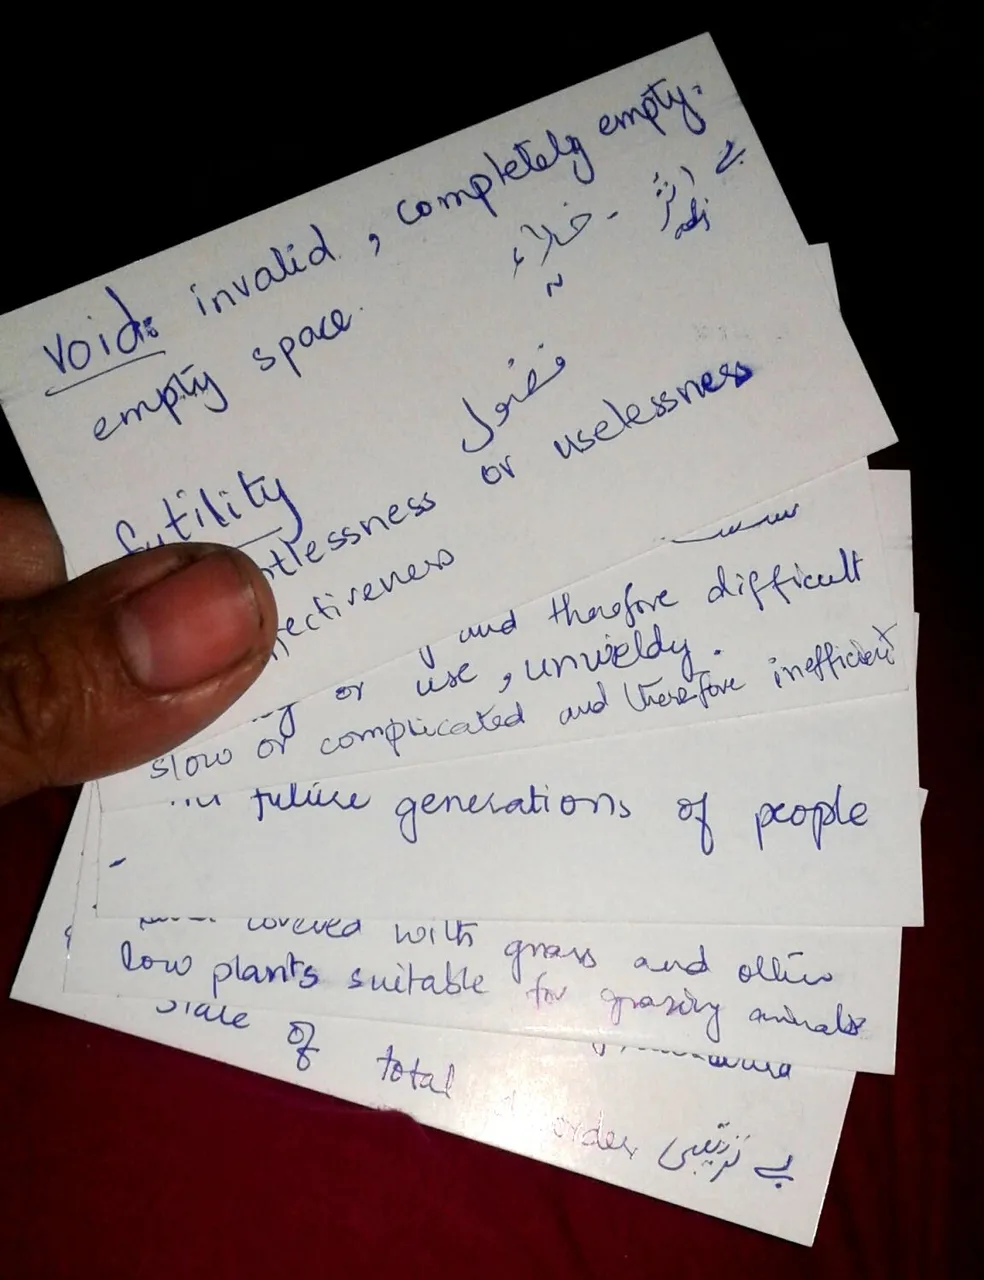 void: invalid, completely empty.
empty space. خلاء - بے اثر
futility فضول
tlessness or uselessness
ectiveness
سست
y and therefore difficult
or use, unwieldy.
slow or complicated and therefore inefficient
future generations of people
covered with grass and other
low plants suitable for grazing animals
state of total order بے ترتیبی